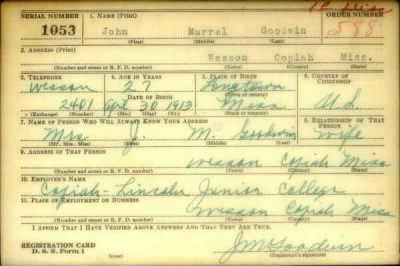 SERIAL NUMBER 1. NAME (Print) ORDER NUMBER
1053 John Murrel Goodwin 588
(First) (Middle) (Last)
2. ADDRESS (Print)
Wesson Copiah Miss.
(Number and street or R. F. D. number) (Town) (County) (State)
3. TELEPHONE 4. AGE IN YEARS 5. PLACE OF BIRTH 6. COUNTRY OF CITIZENSHIP
Wesson 27
DATE OF BIRTH (Town or county)
2401 Apr. 30 1913 Miss U.S.
(Exchange) (Number) (Mo.) (Day) (Yr.) (State or country)
7. NAME OF PERSON WHO WILL ALWAYS KNOW YOUR ADDRESS 8. RELATIONSHIP OF THAT PERSON
Mrs J. M. Goodwin wife
(Mr., Mrs., Miss) (First) (Middle) (Last)
9. ADDRESS OF THAT PERSON
Wesson Copiah Miss
(Number and street or R. F. D. number) (Town) (County) (State)
10. EMPLOYER'S NAME
Copiah-Lincoln Junior College
11. PLACE OF EMPLOYMENT OR BUSINESS
Wesson Copiah Miss
(Number and street or R. F. D. number) (Town) (County) (State)
I AFFIRM THAT I HAVE VERIFIED ABOVE ANSWERS AND THAT THEY ARE TRUE.
REGISTRATION CARD
D. S. S. Form 1
J M Goodwin
(Registrant's signature)